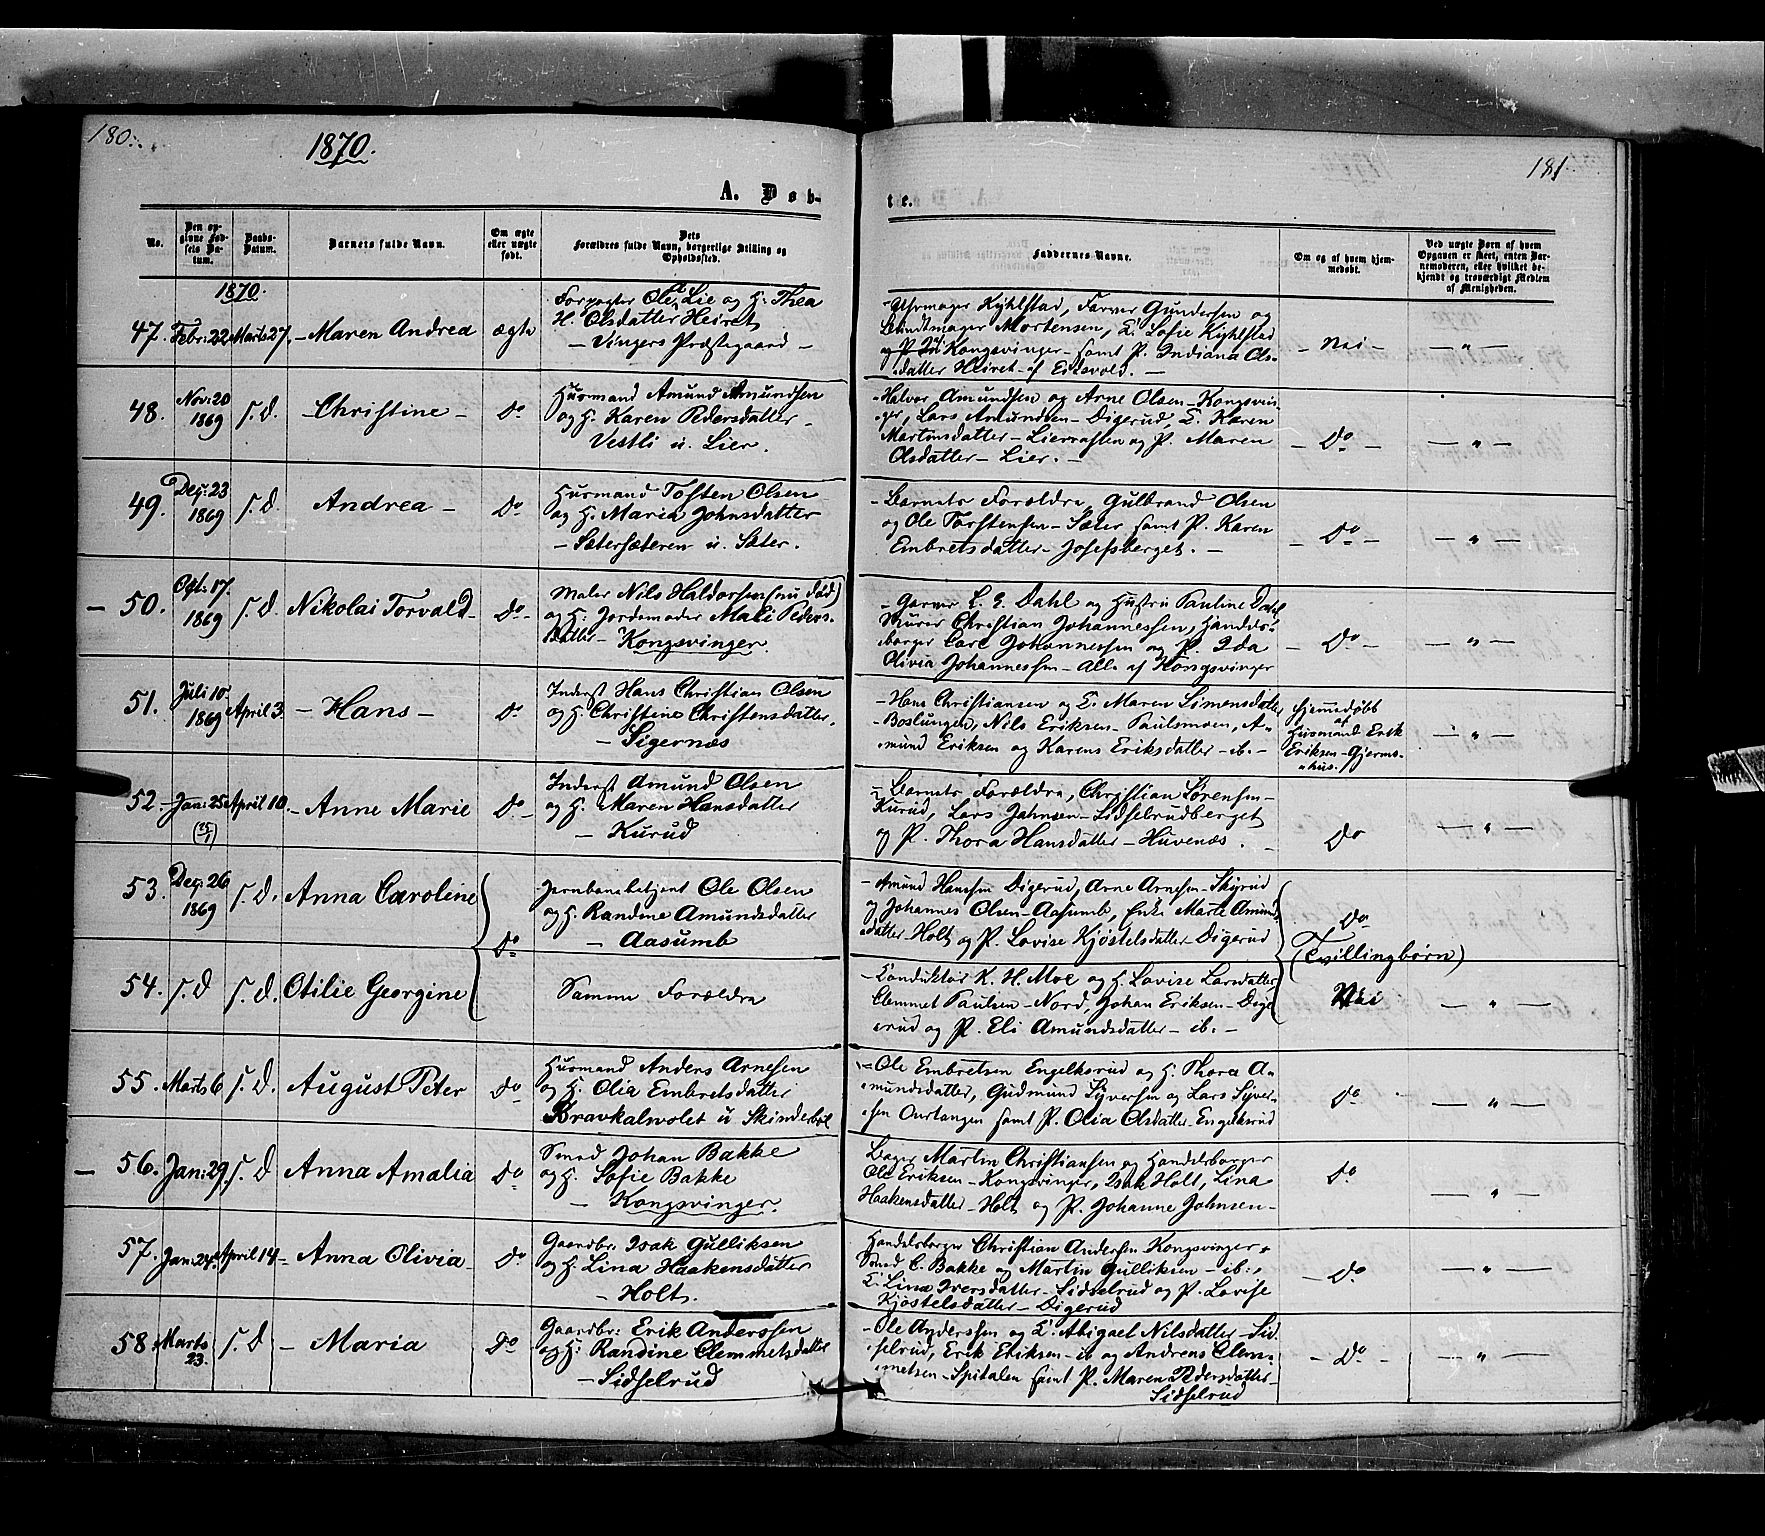 180.
1870.
181
A. Døb-
te.
No.
Den op-
givne Fød-
sels Da-
tum.
Daabs-
Datum.
Barnets fulde Navn.
Om ægte
eller uægte
født.
Dets
Forældres fulde Navn, borgerlige Stilling og
Opholdssted.
Faddernes Navne.
Om og af hvem hjem-
medøbt.
Ved uægte Børn af hvem
Opgaven er skeet, enten Bar-
nemoderen, eller hvilket be-
kjendt og troværdigt Medlem
af Menigheden.
1870.
47. Febr: 22 Marts 27. - Maren Andrea ægte
Forpagter Ole Lie og H: Thea
H. Olsdatter Heiret
- Vingers Præstegaard -
Kyhlstad, Farver Gundersen og
Mortensen, E. Sofie Kyhlstad
Kongsvinger - samt P. Indiana Ols-
datter Heiret - af Eidsvold. -
- Nei - - " -
48. Nov: 20 1869 s. d. Christine - do
Husmand Amund Amundsen
og H. Karen Pedersdatter -
Vestli u. Lier.
- Halvor Amundsen og Arne Olsen - Kongsvin-
ger, Lars Amundsen - Digerud, E. Karen
Martinsdatter - Lier og P. Maren
Olsdatter - Lier. -
- do - - " -
49. Dec: 23 1869 s. d. Andrea - do
Husmand Tosten Olsen
og H. Maria Johnsdatter
- Sætersæteren u. Sæter.
- Barnets Forældre, Gulbrand Olsen
og Ole Torstensen - Sæter samt P. Karen
Embretsdatter - Josefsberget. -
- do - - " -
- 50. Oct: 17. 1869 s. d. Nikolai Torvald - do -
Maler Nils Haldorsen (nu død)
og H. Jordemoder Mali Peders-
datter - Kongsvinger.
- Garver L. E. Dahl og Hustru Pauline Dahl
Murer Christian Johannessen, Handels-
borger Carl Johannessen og P. Ida
Olivia Johannessen - Alle af Kongsvinger
- do - " -
51. Juli 10 1869 April 3 - Hans - do
Inderst Hans Christian Olsen
og H. Christine Christensdatter.
- Sigernæs
- Hans Christiansen og E. Maren Simensdatter
- Boslungen, Nils Eriksen - Paulsmoen, A-
mund Eriksen og Karens Eriksdatter - ib. -
Hjemmedøbt
af
Husmand Erik
Eriksen - Gjerms-
hus.
- " -
52. Jan: 25 (25/1) April 10 - Anne Marie do -
Inderst Amund Olsen
og H. Maren Hansdatter
- Kurud
- Barnets Forældre, Christian Sørensen -
Kurud, Lars Johnsen - Sidselrudberget
og P. Thora Hansdatter - Huvenæs.
do - " -
53. Dec: 26 1869 s. d. Anna Caroline do
Jernbanebetjent Ole Olsen
og H. Randine Amundsdatter
- Aasumb
- Amund Hanssen Digerud, Arne Arnesen - Skyrud
og Johannes Olsen - Aasumb, Enke Marte Amunds-
datter - Holt og P. Lovise Kjøstelsdatter - Digerud
do
(Tvillingbørn)
54. s. d s. d. Otilie Georgine
Samme Forældre
- Conduktør K. H. Moe og H. Lovise Larsdatter,
Clemmet Paulsen - Nord, Johan Eriksen - Dige
rud og P. Eli Amundsdatter - ib. -
Nei - " -
55. Marts 6 s. d. August Peter do
Husmand Anders Arnesen
og H. Olia Embretsdatter
Bravkalvolet u Skinderbøl
- Ole Embretsen Engelksrud og H. Thora A-
mundsdatter, Gudmund Syversen og Lars Syver-
sen Ourlangen samt P. Olia Olsdatter - Engelksrud
do - " -
- 56. Jan: 29. s. d Anna Amalia do
Smed Johan Bakke
og H. Sofie Bakke
- Kongsvinger.
Bager Martin Christiansen og Handelsborger
Ole Eriksen - Kongsvinger, Isak Holt, Lina
Haakensdatter - Holt og P. Johanne Johnsen -
do - " -
57. Jan: 24. April 14 - Anna Olivia - do
Gaardbr. Isak Gulliksen
og H. Lina Haakensdatter
- Holt.
Handelsborger Christian Andersen Kongsvinger,
Smed C. Bakke og Martin Gulliksen - ib.,
E. Lina Iversdatter - Sidselrud og P. Lovise
Kjøstelsdatter - Digerud
- do - " -
58 Marts 23. s. d - Maria do
Gaardbr: Erik Anderssen
og H: Randine Clemmetsdatter
- Sidselrud
- Ole Anderssen og E. Abigael Nilsdatter - Sid-
selrud, Erik Eriksen - ib og Andreas Clem-
metsen - Spitalen samt P. Maren Pedersdatter -
Sidselrud
- do - - " -